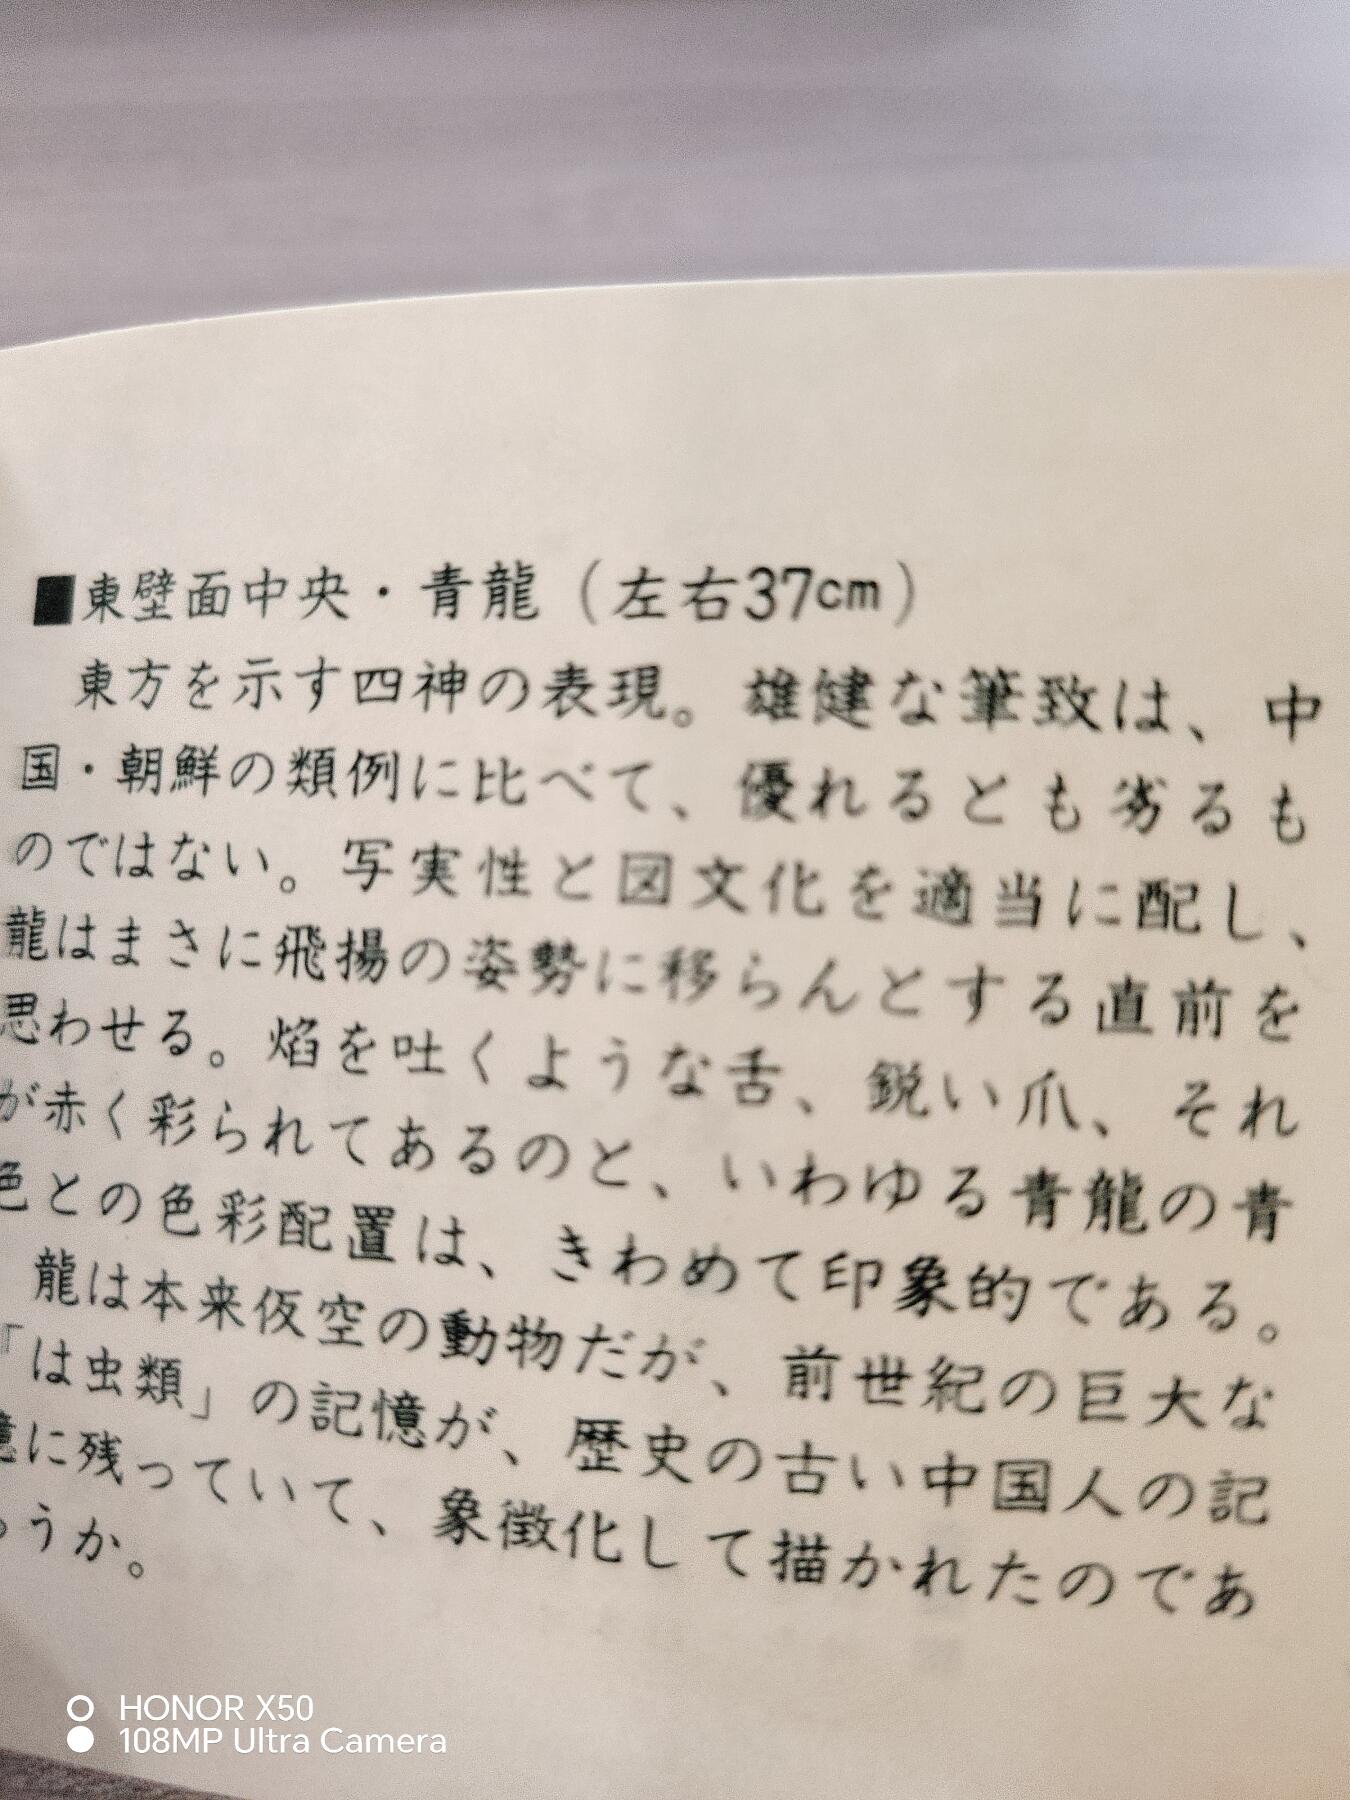 ■東壁面中央・青龍（左右37cm）
東方を示す四神の表現。雄健な筆致は、中
国・朝鮮の類例に比べて、優れるとも劣るも
のではない。写実性と図文化を適当に配し、
龍はまさに飛揚の姿勢に移らんとする直前を
思わせる。焔を吐くような舌、鋭い爪、それ
が赤く彩られてあるのと、いわゆる青龍の青
色との色彩配置は、きわめて印象的である。
龍は本来仮空の動物だが、前世紀の巨大な
「は虫類」の記憶が、歴史の古い中国人の記
憶に残っていて、象徴化して描かれたのであ
ろうか。
HONOR X50
108MP Ultra Camera